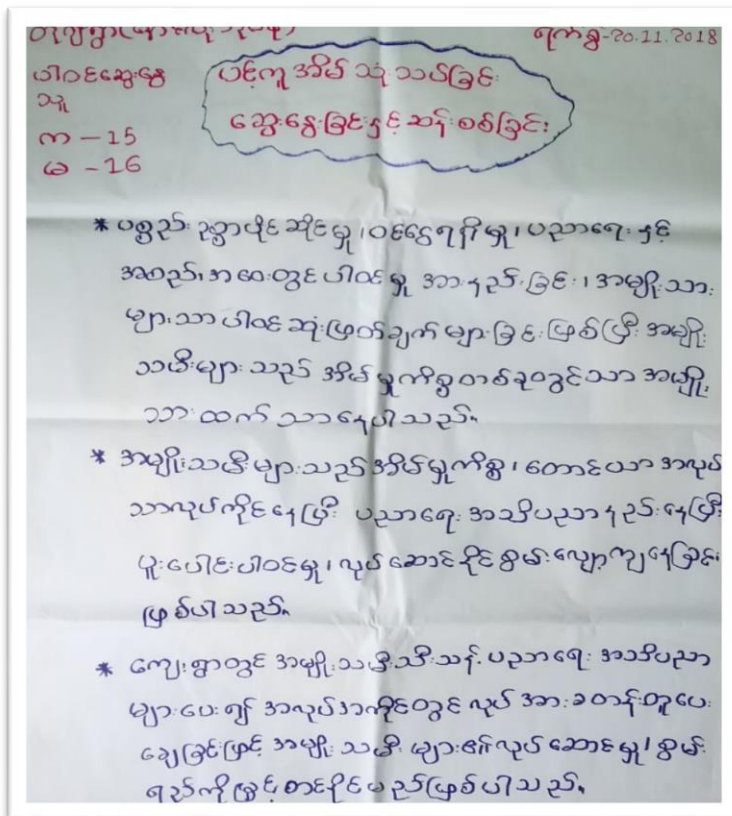 ရက်စွဲ-20.11.2018
ပါဝင်ဆွေးနွေး
သူ
ကျ - 15
မ - 16
ပင့်ကူအိမ် သုံးသပ်ခြင်း
ဆွေးနွေးခြင်းနှင့် ဆန်းစစ်ခြင်း
* ပစ္စည်း ဥစ္စာပိုင်ဆိုင်မှု၊ ဝင်ငွေရရှိမှု၊ ပညာရေးနှင့်
အစည်းအဝေးတွင် ပါဝင်မှု အားနည်းခြင်း၊ အမျိုးသား
များသာ ပါဝင်ဆုံးဖြတ်ချက်များခြင်းဖြစ်ပြီး အမျိုး
သမီးများ သည် အိမ်မှုကိစ္စတစ်ခုတွင်သာ အမျိုး
သားထက် သာနေပါသည်။
* အမျိုးသမီးများသည် အိမ်မှုကိစ္စ၊ တောင်ယာ အလုပ်
သာလုပ်ကိုင်နေပြီး ပညာရေး အသိပညာနည်းနေပြီး
ပူးပေါင်းပါဝင်မှု၊ လုပ်ဆောင်နိုင်စွမ်းလျော့ကျနေခြင်း
ဖြစ်ပါသည်။
* ကျေးရွာတွင် အမျိုးသမီးသီးသန့် ပညာရေး အသိပညာ
များပေး၍ အလုပ်အကိုင်တွင် လုပ်အားခတန်းတူပေး
ချေခြင်းဖြင့် အမျိုးသမီးများ၏ လုပ်ဆောင်မှု၊ စွမ်း
ရည်ကို မြှင့်တင်နိုင်မည်ဖြစ်ပါသည်။